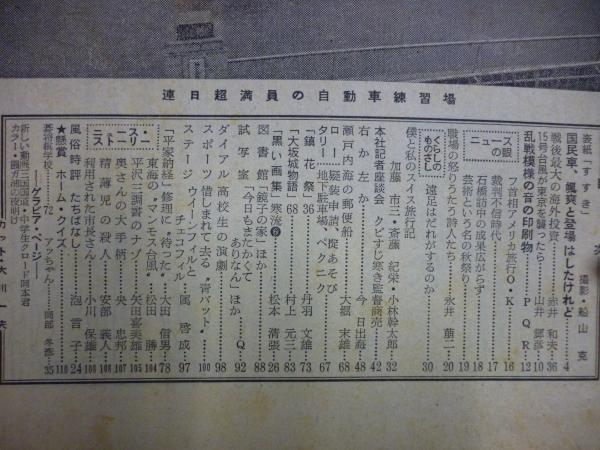 連日超満員の自動車練習場
目次
表紙「すすき」 撮影・船山 克
国民車、颯爽と登場はしたけれど 4
戦後最大の海外投資 赤井和夫 36
15号台風が東京を襲ったら 山井 10
乱戦模様の音の印刷物 P・Q・R 12
ニュースの眼
フ首相アメリカ旅行O・K 16
裁判不信時代 17
石橋訪中の成果広がらず 18
芸術という名の秋祭り 19
職場の怒りうたう詩人たち 永井萠二 20
くらしのものさし
遠足はだれがするのか 30
僕と私のスイス旅行記
加藤市三・斎藤紀栄・小林幹太郎 32
本社記者座談会 クビすじ寒き監督商売 42
右か左か 今日出海 48
瀬戸内海の郵便船 大堀末雄 68
ロー、擬装申請、掟あそび
タリー 地下駐車場、ペクニク 67
「鎮花祭」36 丹羽文雄 73
「大坂城物語」68 村上元三 83
「黒い画集」寒流 松本清張 26
図書館「鏡子の家」ほか 88
試写室「今日もまたかくてありなん」ほか Q 92
ダイアル 高校生の演劇 98
スポーツ 惜しまれて去る“青バット” 100
ステージ ウィーンフィルとチェコフィル 属啓成 97
「平家納経」修理に“待った” 大田信男 78
ニュース・ストーリー
東海の“マンモス台風” 松田勝 104
平沢三調書のナゾ 矢田喜美雄 105
奥さんの大手柄 央忠邦 107
精薄児の殺人 安部義人 108
利用された市長さん 小川保雄 106
風俗時評 たちばなし 泡言子 24
★懸賞 ホーム・クイズ 110
碁将棋学校 72 アッちゃん 岡部冬彦 35
グラビア・ページ
新しい動脈三国国道・中学生クロード岡本君
カラー・園ガ浦の夜明け
カット 大川一夫